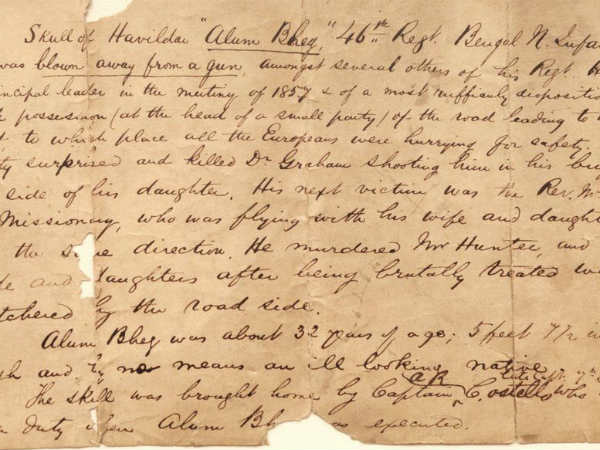 Skull of Havildar "Alum Bheg," 46th Regt. Bengal N. Infan
was blown away from a gun, amongst several others of his Regt. H
ncipal leader in the mutiny of 1857 & of a most ruffianly dispositio
possession (at the head of a small party) of the road leading to
to which place all the Europeans were hurrying for safety.
ty surprised and killed Dr. Graham shooting him in his bu
side of his daughter. His next victim was the Rev. Mr.
Missionary, who was flying with his wife and daught
the same direction. He murdered Mr Hunter, and
and daughters after being brutally treated we
tchered by the road side.
Alum Bheg was about 32 years of age; 5 feet 7½ in
gh and by no means an ill looking native
The skull was brought home by Captain AR Costello who
duty when Alum Bh as executed.